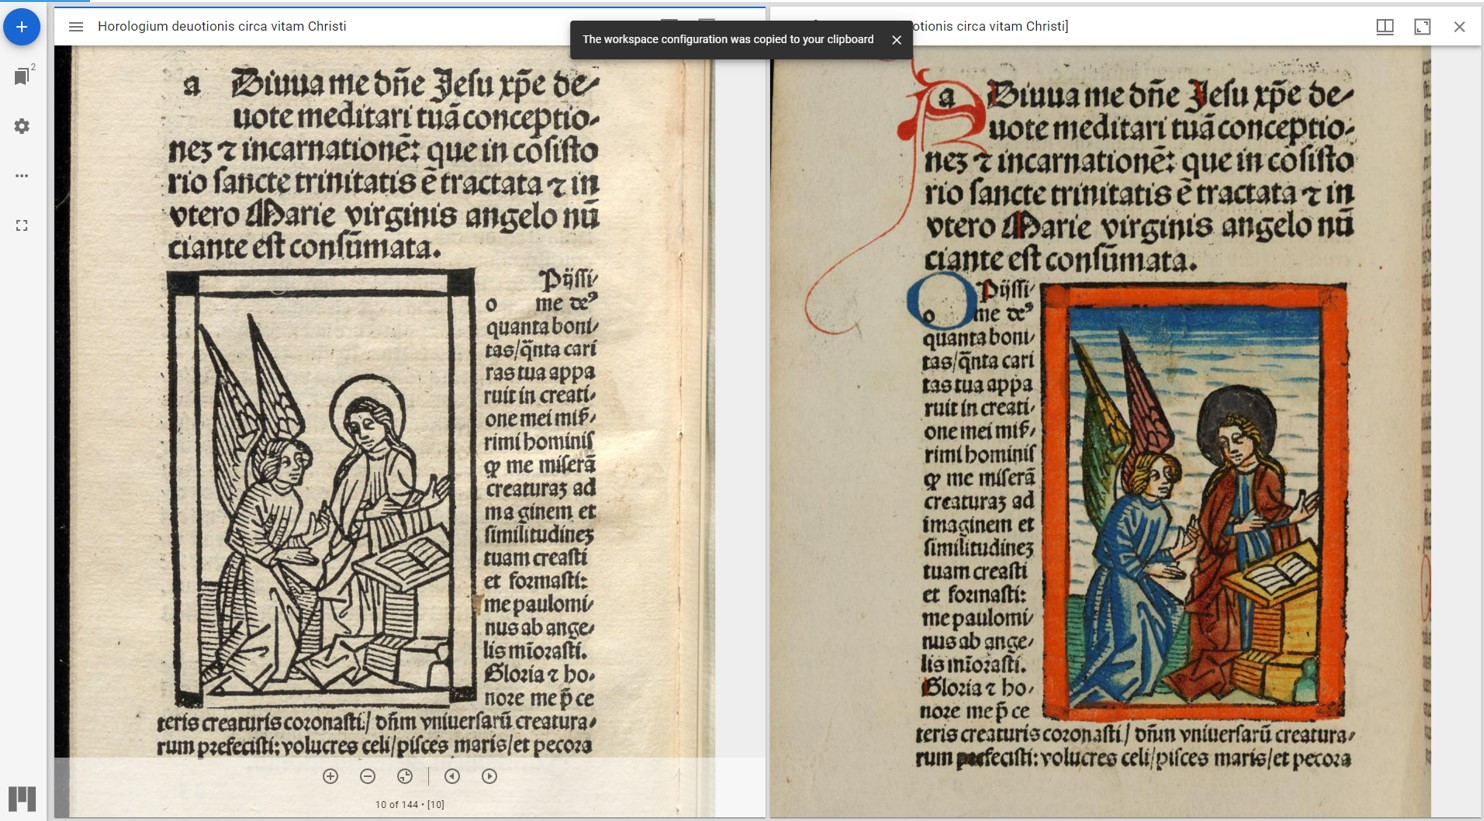 2
Horologium deuotionis circa vitam Christi
The workspace configuration was copied to your clipboard
otionis circa vitam Christi]
a Biuua me dn̄e Jesu xp̄e de⸗
uote meditari tuā conceptio⸗
neʒ ⁊ incarnationē: que in cōsisto
rio sancte trinitatis ē tractata ⁊ in
vtero Marie virginis angelo nū
ciante est consūmata.
Pijssi⸗
o me deꝰ
quanta boni⸗
tas/q̄nta cari
ras tua appa
ruit in creati⸗
one mei mis̄⸗
rimi hominis
ꝙ me miserā
creaturaʒ ad
ma ginem et
similitudineʒ
tuam creasti
et formasti:
me paulomi⸗
nus ab ange⸗
lis mīorasti.
Gloria ⁊ ho⸗
nore me p̄ ce
teris creaturis coronasti/ dn̄m vniuersarū creatura⸗
rum prefecisti: volucres celi/pisces maris/et pecora
10 of 144 • [10]
a Biuua me dn̄e Jesu xp̄e de⸗
uote meditari tuā conceptio⸗
neʒ ⁊ incarnationē: que in cōsisto
rio sancte trinitatis ē tractata ⁊ in
vtero Marie virginis angelo nū
ciante est consūmata.
O Pijssi⸗
o me deꝰ
quanta boni⸗
tas/q̄nta cari
tas tua appa
ruit in creati⸗
one mei mis̄⸗
rimi hominis
ꝙ me miserā
creaturaʒ ad
imaginem et
similitudineʒ
tuam creasti
et formasti:
me paulomi⸗
nus ab ange⸗
lis mīorasti.
Gloria ⁊ ho⸗
nore me p̄ ce
teris creaturis coronasti/ dn̄m vniuersarū creatura⸗
rum prefecisti: volucres celi/pisces maris/et pecora